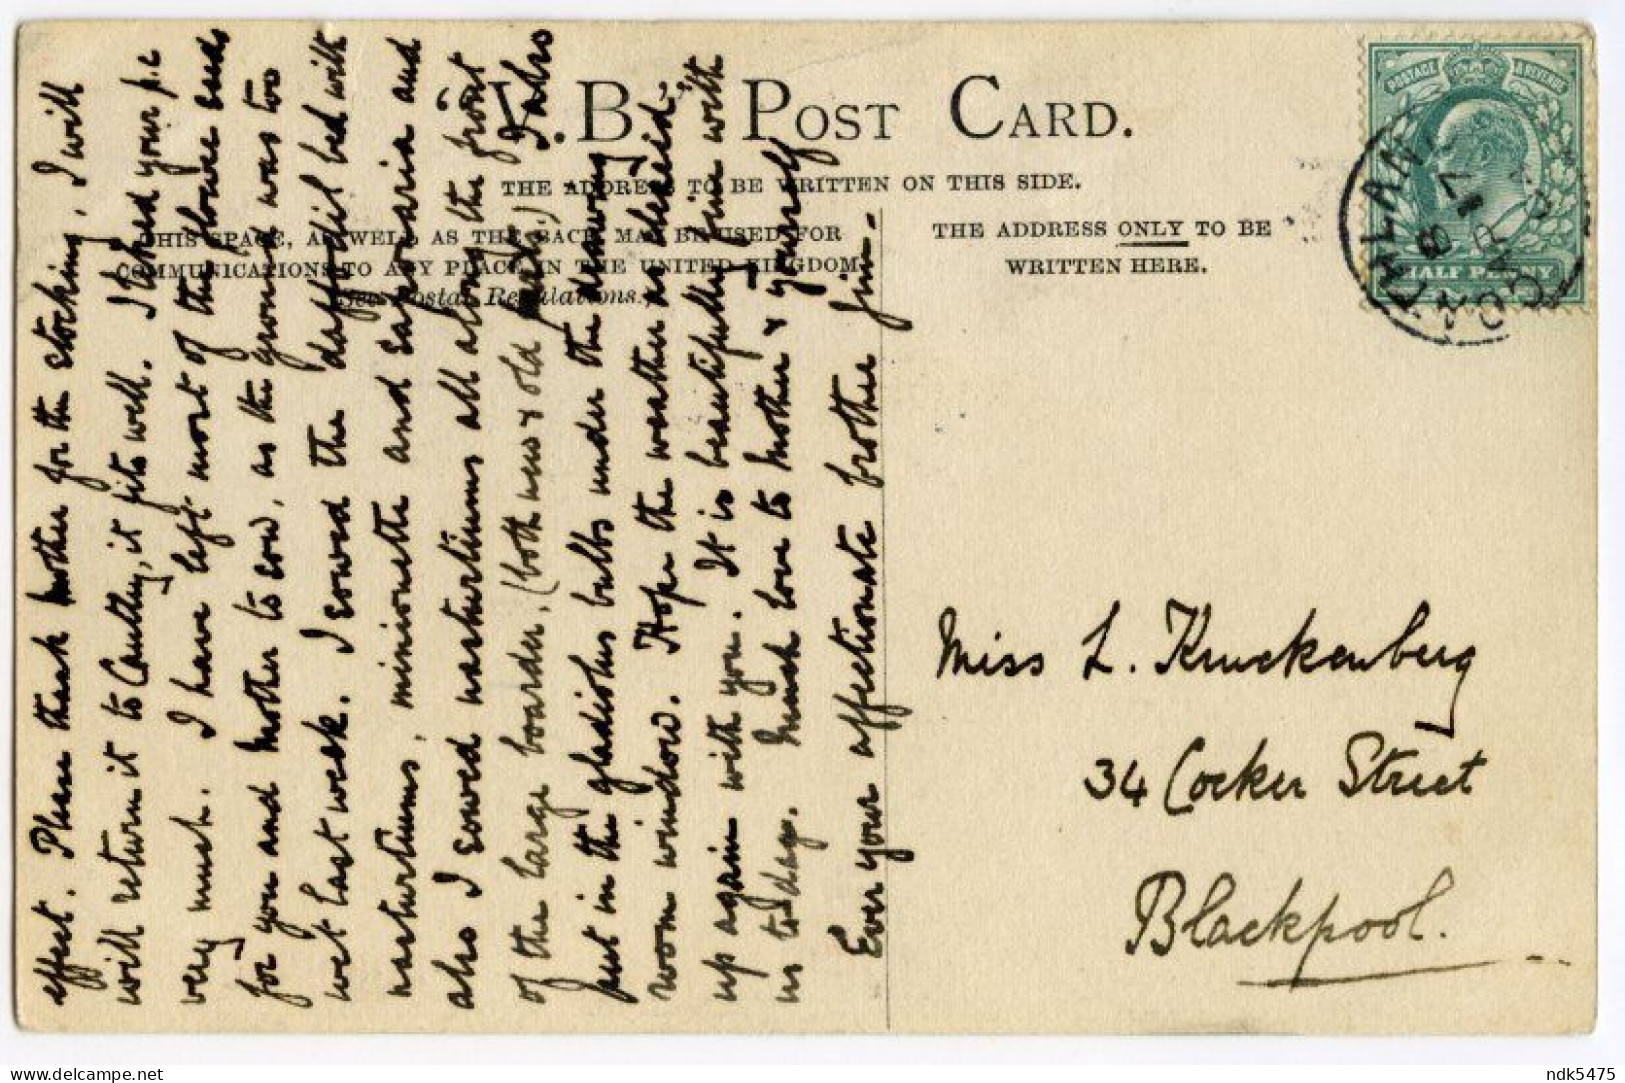 effect. Please thank mother for the stocking, I will
will return it to Cautley, it fits well. I liked your p.c
very much. I have left most of the flower seeds
for you and mother to sow, as the ground was too
wet last week. I sowed the daffodil bed with
nasturtiums, minionette and saponaria and
also I sowed nasturtiums all along the front
of the large boarder, (both new & old I also
put in the gladiolus bulbs under the drawing
room window. Hope the weather has cleared
up again with you. It is beautifully fine with
us to day. Much love to Mother & yourself
Ever your affectionate brother Jim.
B. Post Card.
THE ADDRESS TO BE WRITTEN ON THIS SIDE.
THIS SPACE, AS WELL AS THE BACK, MAY BE USED FOR
COMMUNICATIONS TO ANY PLACE IN THE UNITED KINGDOM.
(See Postal Regulations.)
THE ADDRESS ONLY TO BE
WRITTEN HERE.
POSTAGE & REVENUE
HALF PENNY
Miss L. Kruckenberg
34 Cocker Street
Blackpool.
delcampe.net
ndk5475